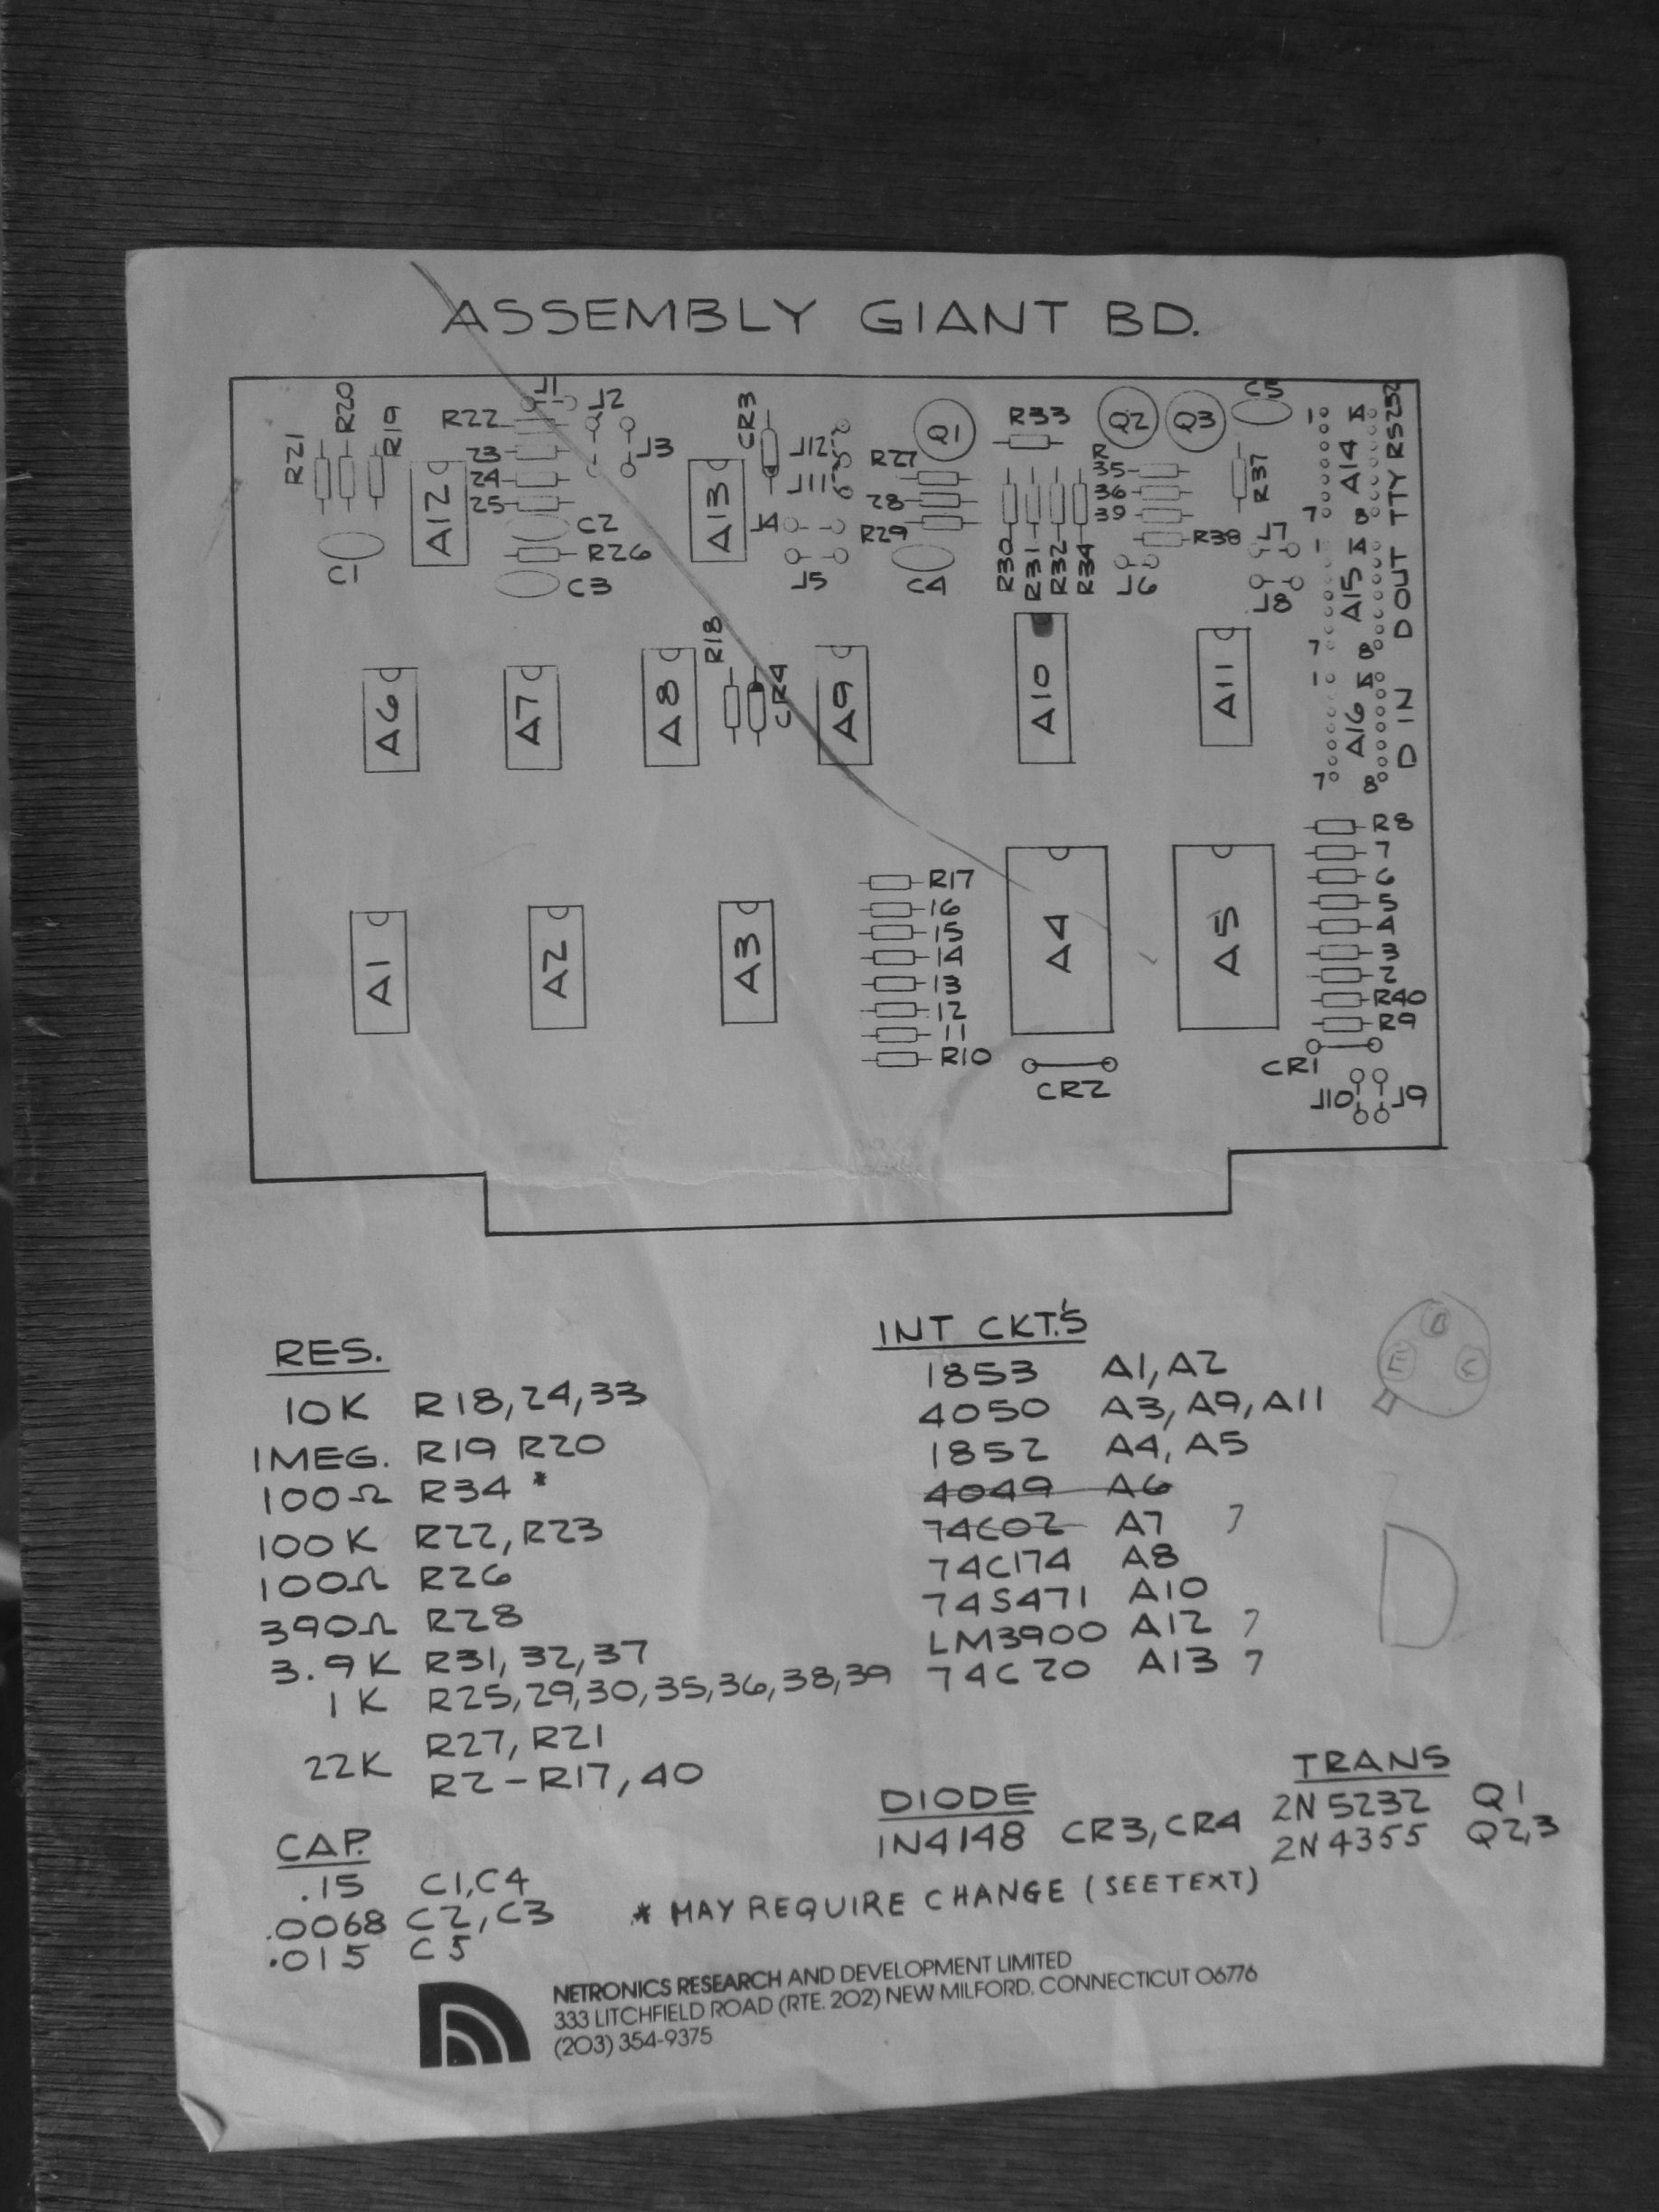 ASSEMBLY GIANT BD.
R21 R20 R19 R22 J1 J2 J3 CR3 J12 J11 Q1 R33 Q2 Q3 C5
23
24
25
A12 C1 C2 R26 C3
A13 J4 J5 R27
28
R29 C4
R30 R31 R32 R34
R
35
36
39
R38 R37 J6 J7 J8
1 A14 7 8
1 A15 7 8
1 A16 7 8
D IN D OUT TTY RS252
A6 A7 A8 R18 CR4 A9 A10 A11
A1 A2 A3
R17
16
15
14
13
12
11
R10
A4 A5
CR2
R8
7
6
5
4
3
2
R40
R9
CR1
J10 J9
RES.
10K R18,24,33
1MEG. R19 R20
100Ω R34 *
100K R22, R23
100Ω R26
390Ω R28
3.9K R31, 32, 37
1K R25,29,30,35,36,38,39
R27, R21
22K
R2 - R17, 40
CAP.
.15 C1,C4
.0068 C2, C3
.015 C5
INT CKT'S
1853 A1, A2
4050 A3, A9, A11
1852 A4, A5
4049 A6
74C02 A7 ?
74C174 A8
74S471 A10
LM3900 A12 ?
74C20 A13 ?
B
E C
D
DIODE
1N4148 CR3, CR4
TRANS
2N 5232 Q1
2N 4355 Q2,3
* MAY REQUIRE CHANGE (SEE TEXT)
NETRONICS RESEARCH AND DEVELOPMENT LIMITED
333 LITCHFIELD ROAD (RTE. 202) NEW MILFORD, CONNECTICUT 06776
(203) 354-9375